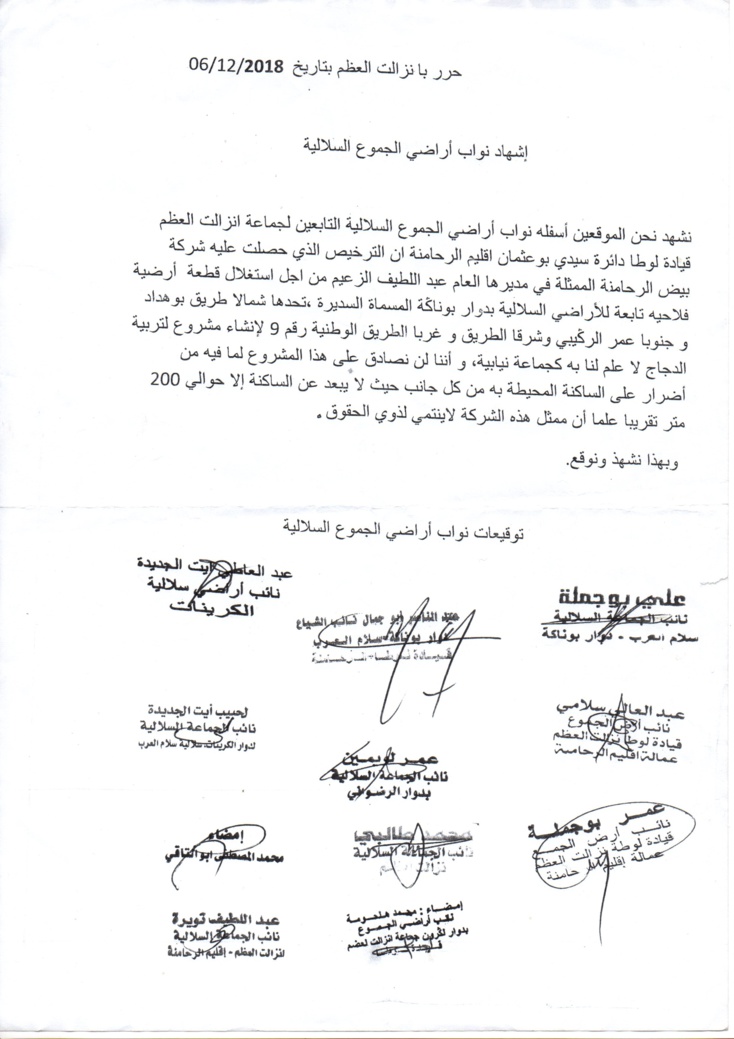 حرر با نزالت العظم بتاريخ 06/12/2018
إشهاد نواب أراضي الجموع السلالية
نشهد نحن الموقعين أسفله نواب أراضي الجموع السلالية التابعين لجماعة انزالت العظم
قيادة لوطا دائرة سيدي بوعثمان اقليم الرحامنة ان الترخيص الذي حصلت عليه شركة
بيض الرحامنة الممثلة في مديرها العام عبد اللطيف الزعيم من اجل استغلال قطعة أرضية
فلاحيه تابعة للأراضي السلالية بدوار بوناكَة المسماة السديرة ،تحدها شمالا طريق بوهداد
و جنوبا عمر الركَيبي وشرقا الطريق و غربا الطريق الوطنية رقم 9 لإنشاء مشروع لتربية
الدجاج لا علم لنا به كجماعة نيابية، و أننا لن نصادق على هذا المشروع لما فيه من
أضرار على الساكنة المحيطة به من كل جانب حيث لا يبعد عن الساكنة إلا حوالي 200
متر تقريبا علما أن ممثل هذه الشركة لاينتمي لذوي الحقوق .
وبهذا نشهذ ونوقع.
توقيعات نواب أراضي الجموع السلالية
علي بوجملة
نائب الجماعة السلالية
سلام العرب - دوار بوناكة
عبد الناصر ابو جمال نائب
دوار بوناكة - سلام العرب
عبد العاطي أيت الجديدة
نائب أراضي سلالية
الكرينات
عبد العالي سلامي
نائب أرض الجموع
قيادة لوطا نزالت العظم
عمالة اقليم الرحامنة
لحبيب أيت الجديدة
نائب الجماعة السلالية
لدوار الكرينات سلالية سلام العرب
عمر لوبمين
نائب الجماعة السلالية
بدوار الرضواني
عمر بوجملة
نائب أرض الجمع
قيادة لوطة نزالت العظم
عمالة إقليم الرحامنة
محمد طالبي
نائب الجماعة السلالية
نزالت العظم
إمضاء
محمد المصطفى ابو التاقي
إمضاء : محمد
نائب أراضي الجموع
بدوار لكرين جماعة انزالت لعضم
عبد اللطيف تويرة
نائب الجماعة السلالية
لنزالت العظم - إقليم الرحامنة